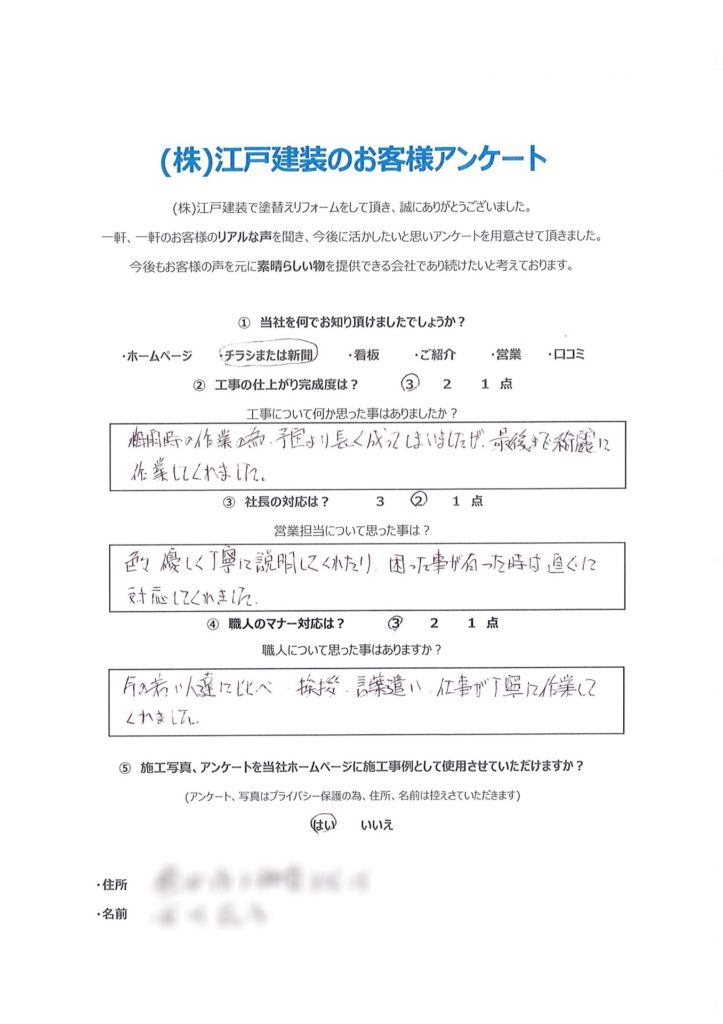 (株)江戸建装のお客様アンケート
(株)江戸建装で塗替えリフォームをして頂き、誠にありがとうございました。
一軒、一軒のお客様のリアルな声を聞き、今後に活かしたいと思いアンケートを用意させて頂きました。
今後もお客様の声を元に素晴らしい物を提供できる会社であり続けたいと考えております。
① 当社を何でお知り頂けましたでしょうか？
・ホームページ ・チラシまたは新聞 ・看板 ・ご紹介 ・営業 ・口コミ
② 工事の仕上がり完成度は？ 3 2 1 点
工事について何か思った事はありましたか？
梅雨時の作業の為、予定より長く成ってしまいましたが、最後まで綺麗に
作業してくれました。
③ 社長の対応は？ 3 2 1 点
営業担当について思った事は？
色々優しく丁寧に説明してくれたり、困った事が有った時は直ぐに
対応してくれました。
④ 職人のマナー対応は？ 3 2 1 点
職人について思った事はありますか？
今の若い人達に比べ、挨拶、言葉遣い、仕事が丁寧に作業して
くれました。
⑤ 施工写真、アンケートを当社ホームページに施工事例として使用させていただけますか？
(アンケート、写真はプライバシー保護の為、住所、名前は控えさていただきます)
はい いいえ
・住所
・名前